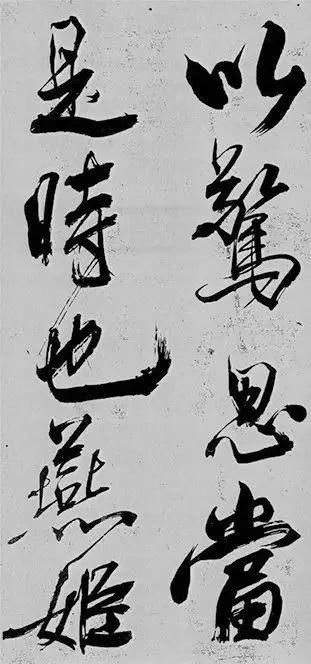 以驚思當
是時也燕姬